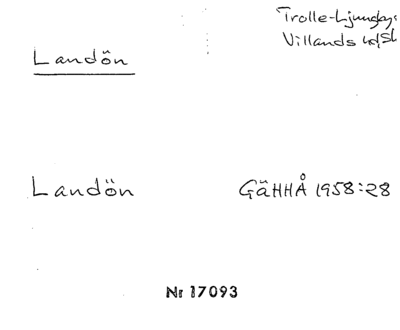 Trolle-Ljungby
Villands hd, Sk
Landön
Landön GÄHHÅ 1958:28
Nr 17093